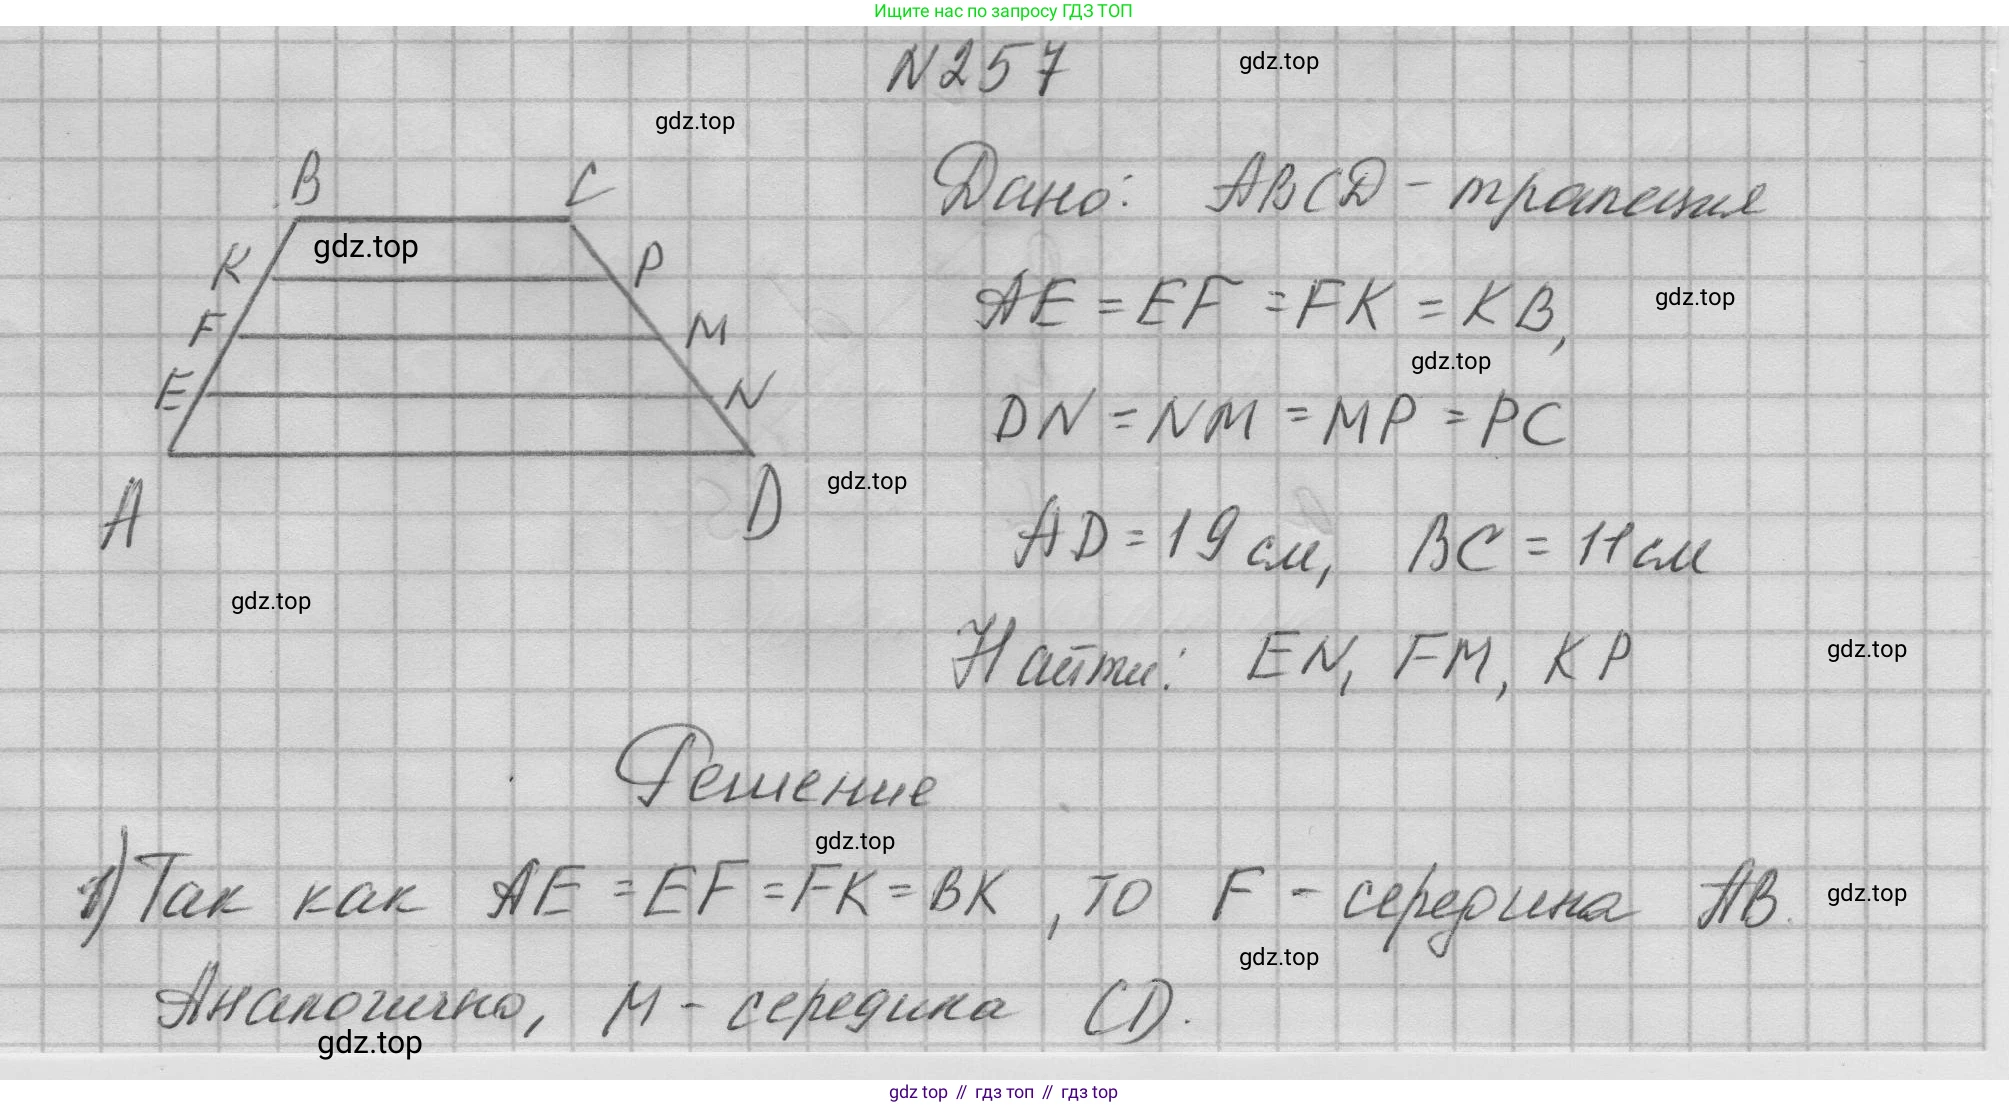 Ищите нас по запросу ГДЗ ТОП
N 257
gdz.top
gdz.top
B
C
Дано: ABCD - трапеция
gdz.top
K
P
AE = EF = FK = KB,
gdz.top
F
M
gdz.top
E
N
DN = NM = MP = PC
A
D
gdz.top
AD = 19 см, BC = 11 см
gdz.top
Найти: EN, FM, KP
gdz.top
Решение
gdz.top
1) Так как AE = EF = FK = BK, то F - середина AB.
gdz.top
gdz.top
Аналогично, M - середина CD.
gdz.top
gdz top // гдз топ // гдз top